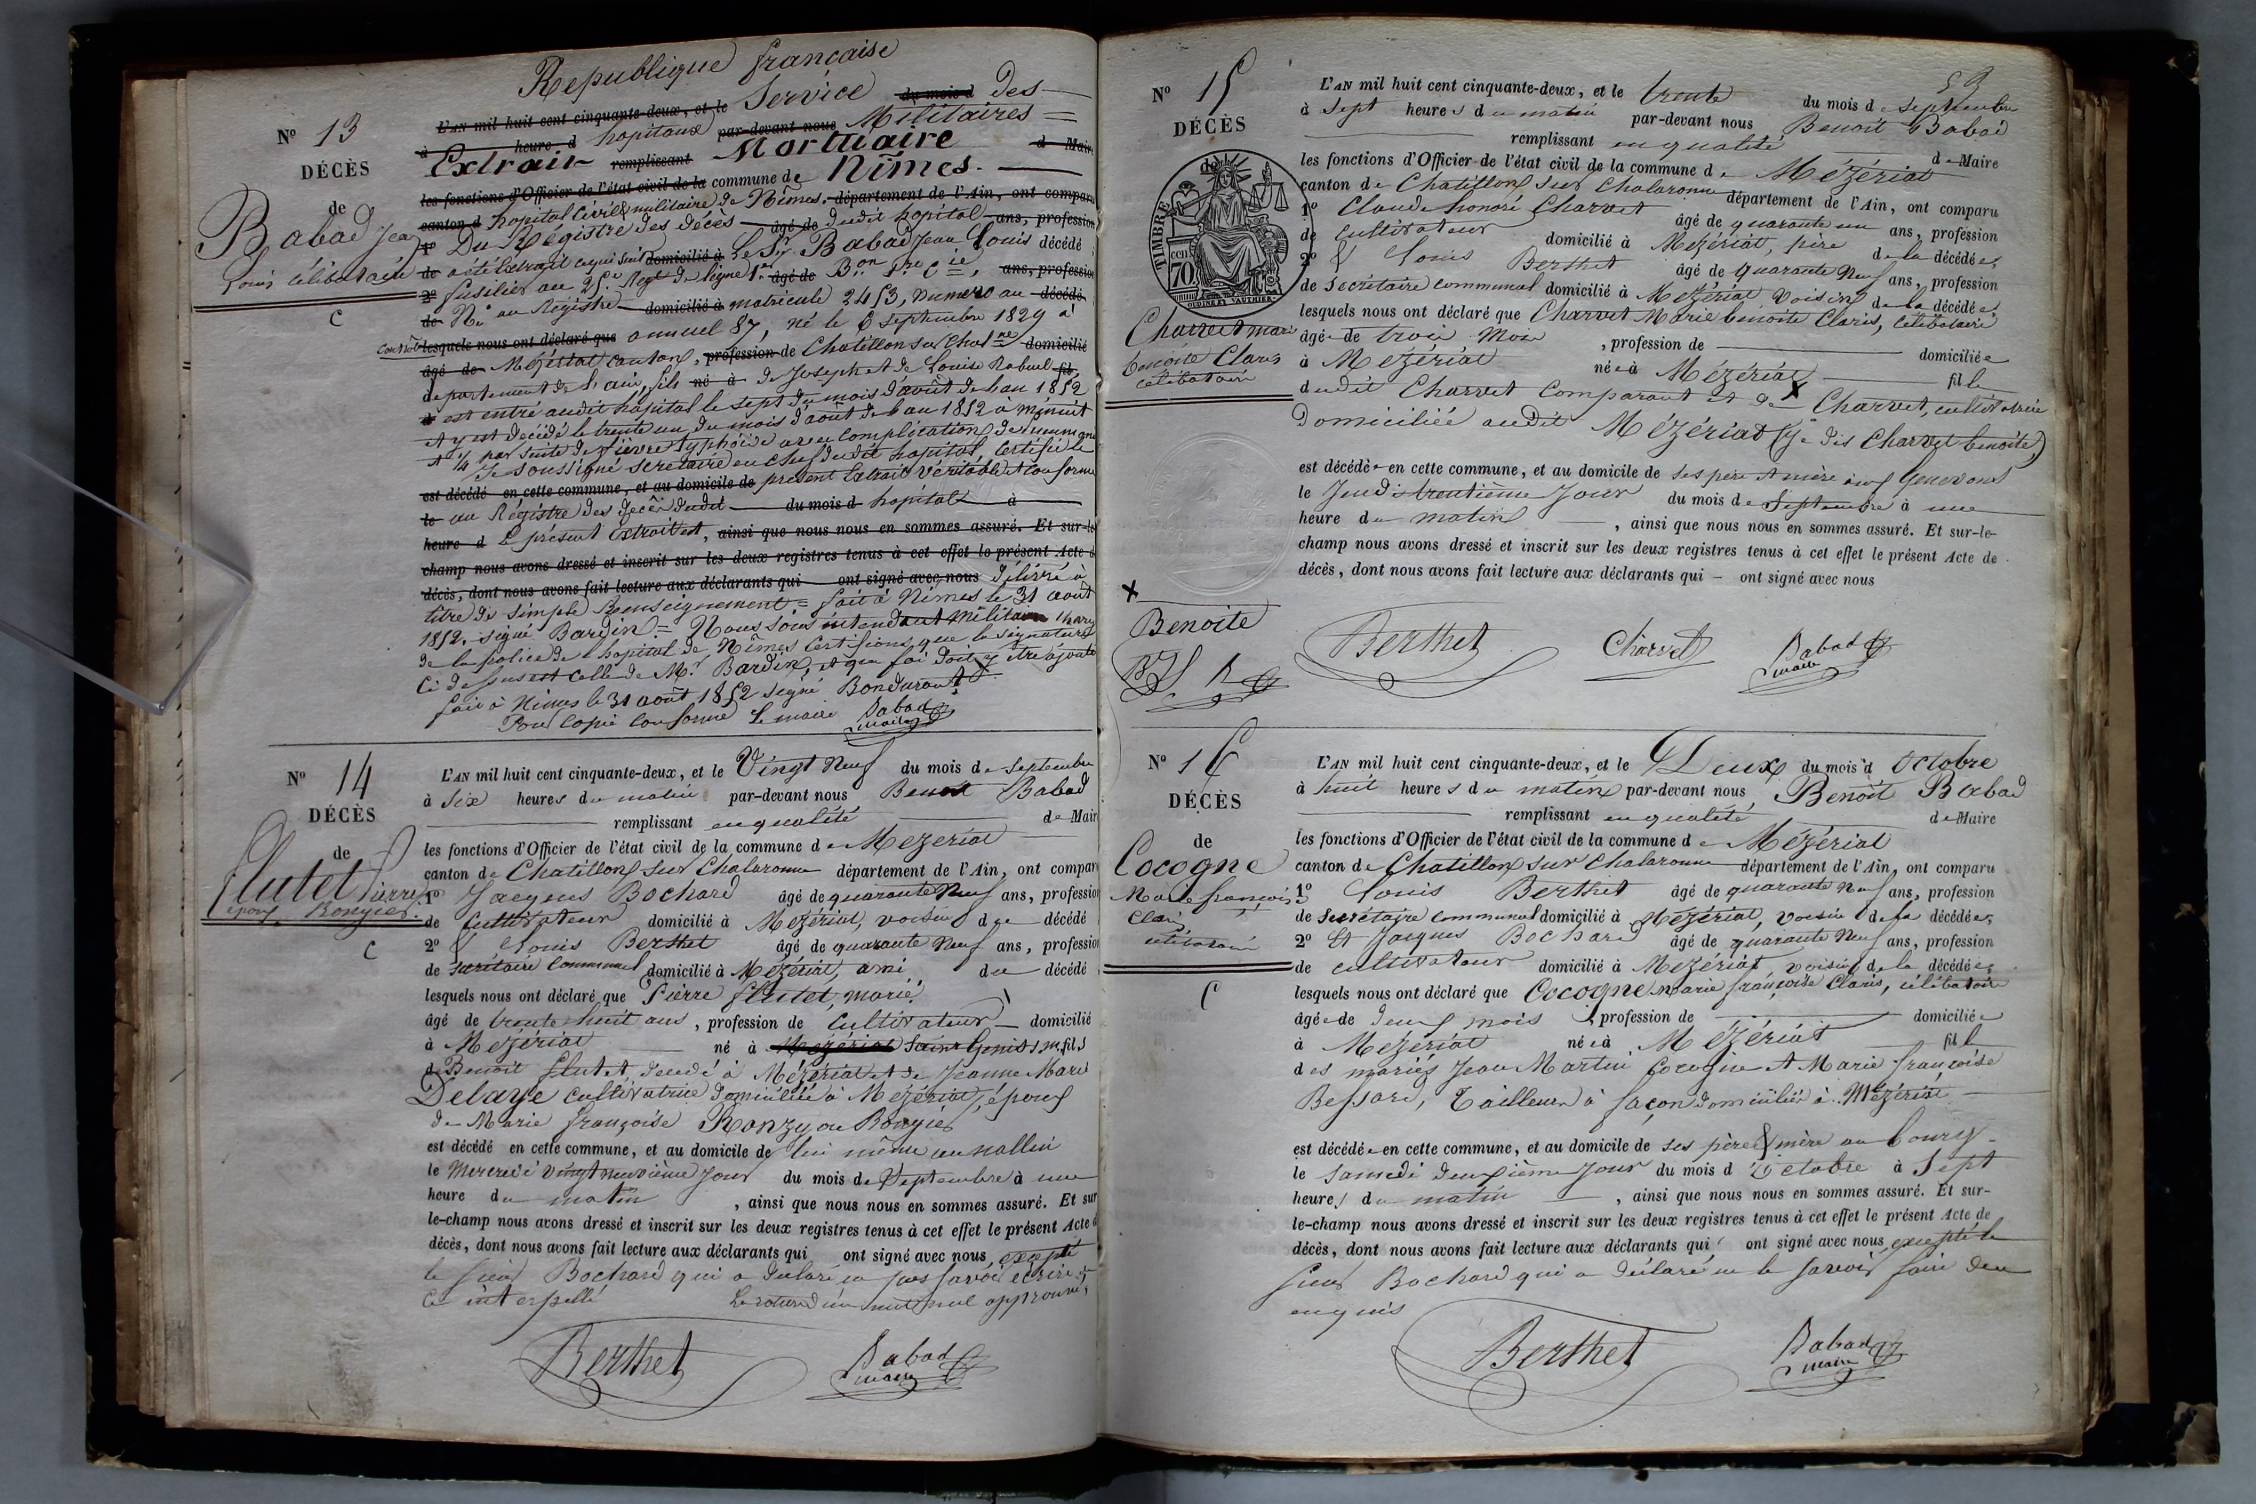 Republique française
N° 13
DÉCÈS
de
Babad Jean
Louis célibataire
C
L'AN mil huit cent cinquante-deux, et le Service du mois d des
à heure d hopitaux par-devant nous Militaires =
Extrait remplissant Mortuaire d Maire
les fonctions d'Officier de l'état civil de la commune de Nîmes.
canton d hopital Civil & militaire de Nîmes. département de l'Ain, ont comparu
1° Du Régistre des décès âgé de dudit hopital ans, profession
de acte Extrait ce qui suit domicilié à Le Sr. Babad Jean Louis décédé
2° fusilier au 25e Regt de ligne 1er âgé de Bon 1re Cie, ans, profession
de No au Régistre domicilié à matricule 2453, numero au décédé
lesquels nous ont déclaré que annuel 87, né le 6 septembre 1829 à
âgé de Mézériat canton, profession de Chatillon sur Chalne domicilié
département de l'ain, fils né à de Joseph et de Louise Rabuel fils
d est entré audit hôpital le sept du mois d'août de l'an 1852
et y est decédé le trente un du mois d'août de l'an 1852 à minuit
et 1/4 par suite de fièvre typhoïde avec complication de
Je soussigné secretaire en chef dudit hopital, certifie le
est décédé en cette commune, et au domicile de présent Extrait véritable et conforme
le au Régistre des décès dudit du mois d hopital à
heure d le présent Extrait est, ainsi que nous nous en sommes assuré. Et sur-le-
champ nous avons dressé et inscrit sur les deux registres tenus à cet effet le présent Acte d
décès, dont nous avons fait lecture aux déclarants qui ont signé avec nous délivré à
titre de simple Renseignement = fait à Nîmes le 31 août
1852. signé Bardin = Nous sous intendant militaire
de la police de l'hopital de Nîmes certifions que la signature
ci dessus est celle de Mr. Bardin, et que foi doit y être ajouté
fait à Nîmes le 31 août 1852 signé Bondurant
Pour copie conforme Le maire Babad
maire
N° 14
DÉCÈS
de
flutet Pierre
époux Rongier.
C
L'AN mil huit cent cinquante-deux, et le Vingt neuf du mois de septembre
à six heures du matin par-devant nous Benoit Babad
remplissant en qualité de Maire
les fonctions d'Officier de l'état civil de la commune de Mézériat
canton de Chatillon sur Chalaronne département de l'Ain, ont comparu
1° Jacques Bochard âgé de quarante neuf ans, profession
de Cultivateur domicilié à Mézériat, voisin du décédé
2° & Louis Berthet âgé de quarante neuf ans, profession
de secrétaire communal domicilié à Mézériat, ami du décédé
lesquels nous ont déclaré que Pierre flutet, marié,
âgé de trente huit ans, profession de Cultivateur domicilié
à Mézériat né à Mézériat Saint Genis s m, fils
d Benoit flutet decedé à Mézériat et de Jeanne Marie
Delaye cultivatrice domiciliée à Mézériat, époux
de Marie françoise Ronzy ou Rongier
est décédé en cette commune, et au domicile de lui même
le Mercredi vingt neuvième jour du mois de Septembre à une
heure du matin, ainsi que nous nous en sommes assuré. Et sur
le-champ nous avons dressé et inscrit sur les deux registres tenus à cet effet le présent Acte d
décès, dont nous avons fait lecture aux déclarants qui ont signé avec nous, excepté
le sieur Bochard qui a déclaré ne pas savoir écrire de
ce interpellé approuvé,
Berthet
Babad
maire
53
N° 15
DÉCÈS
de
TIMBRE
cen
70.
Charvet marie
benoite Claris
célibataire
L'AN mil huit cent cinquante-deux, et le trente du mois de septembre
à sept heures du matin par-devant nous Benoit Babad
remplissant en qualité de Maire
les fonctions d'Officier de l'état civil de la commune de Mézériat
canton de Chatillon sur Chalaronne département de l'Ain, ont comparu
1° Claude honoré Charvet âgé de quarante un ans, profession
de cultivateur domicilié à Mézériat, père de la décédée,
2° & Louis Berthet âgé de quarante neuf ans, profession
de secrétaire communal domicilié à Mézériat, voisin de la décédée
lesquels nous ont déclaré que Charvet Marie benoite Claris, célibataire
âgée de trois mois, profession de domiciliée
à Mézériat née à Mézériat fille
dudit Charvet comparant et de X Charvet, cultivatrice
Domiciliée audit Mézériat (je dis Charvet benoite)
est décédée en cette commune, et au domicile de ses père et mère
le Jeudi trentième jour du mois de Septembre à une
heure du matin, ainsi que nous nous en sommes assuré. Et sur-le-
champ nous avons dressé et inscrit sur les deux registres tenus à cet effet le présent Acte de
décès, dont nous avons fait lecture aux déclarants qui – ont signé avec nous
X
Benoite
Berthet
Charvet
Babad
maire
N° 16
DÉCÈS
de
Cocogne
Marie françoise
Claris
célibataire
C
L'AN mil huit cent cinquante-deux, et le Deux du mois d octobre
à huit heures du matin par-devant nous Benoit Babad
remplissant en qualité de Maire
les fonctions d'Officier de l'état civil de la commune de Mézériat
canton de Chatillon sur Chalaronne département de l'Ain, ont comparu
1° Louis Berthet âgé de quarante neuf ans, profession
de secrétaire communal domicilié à Mézériat, voisin de la décédée,
2° Et Jacques Bochard âgé de quarante neuf ans, profession
de cultivateur domicilié à Mézériat, voisin de la décédée,
lesquels nous ont déclaré que Cocogne Marie françoise Claris, célibataire
âgée de deux mois, profession de domiciliée
à Mézériat née à Mézériat fille
des mariés Jean Martin Cocogne et Marie françoise
Bessard, Tailleur à façon domiciliés à Mézériat
est décédée en cette commune, et au domicile de ses père & mère au bourg
le samedi deuxième jour du mois d Octobre à sept
heures du matin, ainsi que nous nous en sommes assuré. Et sur-
le-champ nous avons dressé et inscrit sur les deux registres tenus à cet effet le présent Acte de
décès, dont nous avons fait lecture aux déclarants qui ont signé avec nous, excepté le
sieur Bochard qui a déclaré ne le savoir faire de ce
enquis
Berthet
Babad
maire